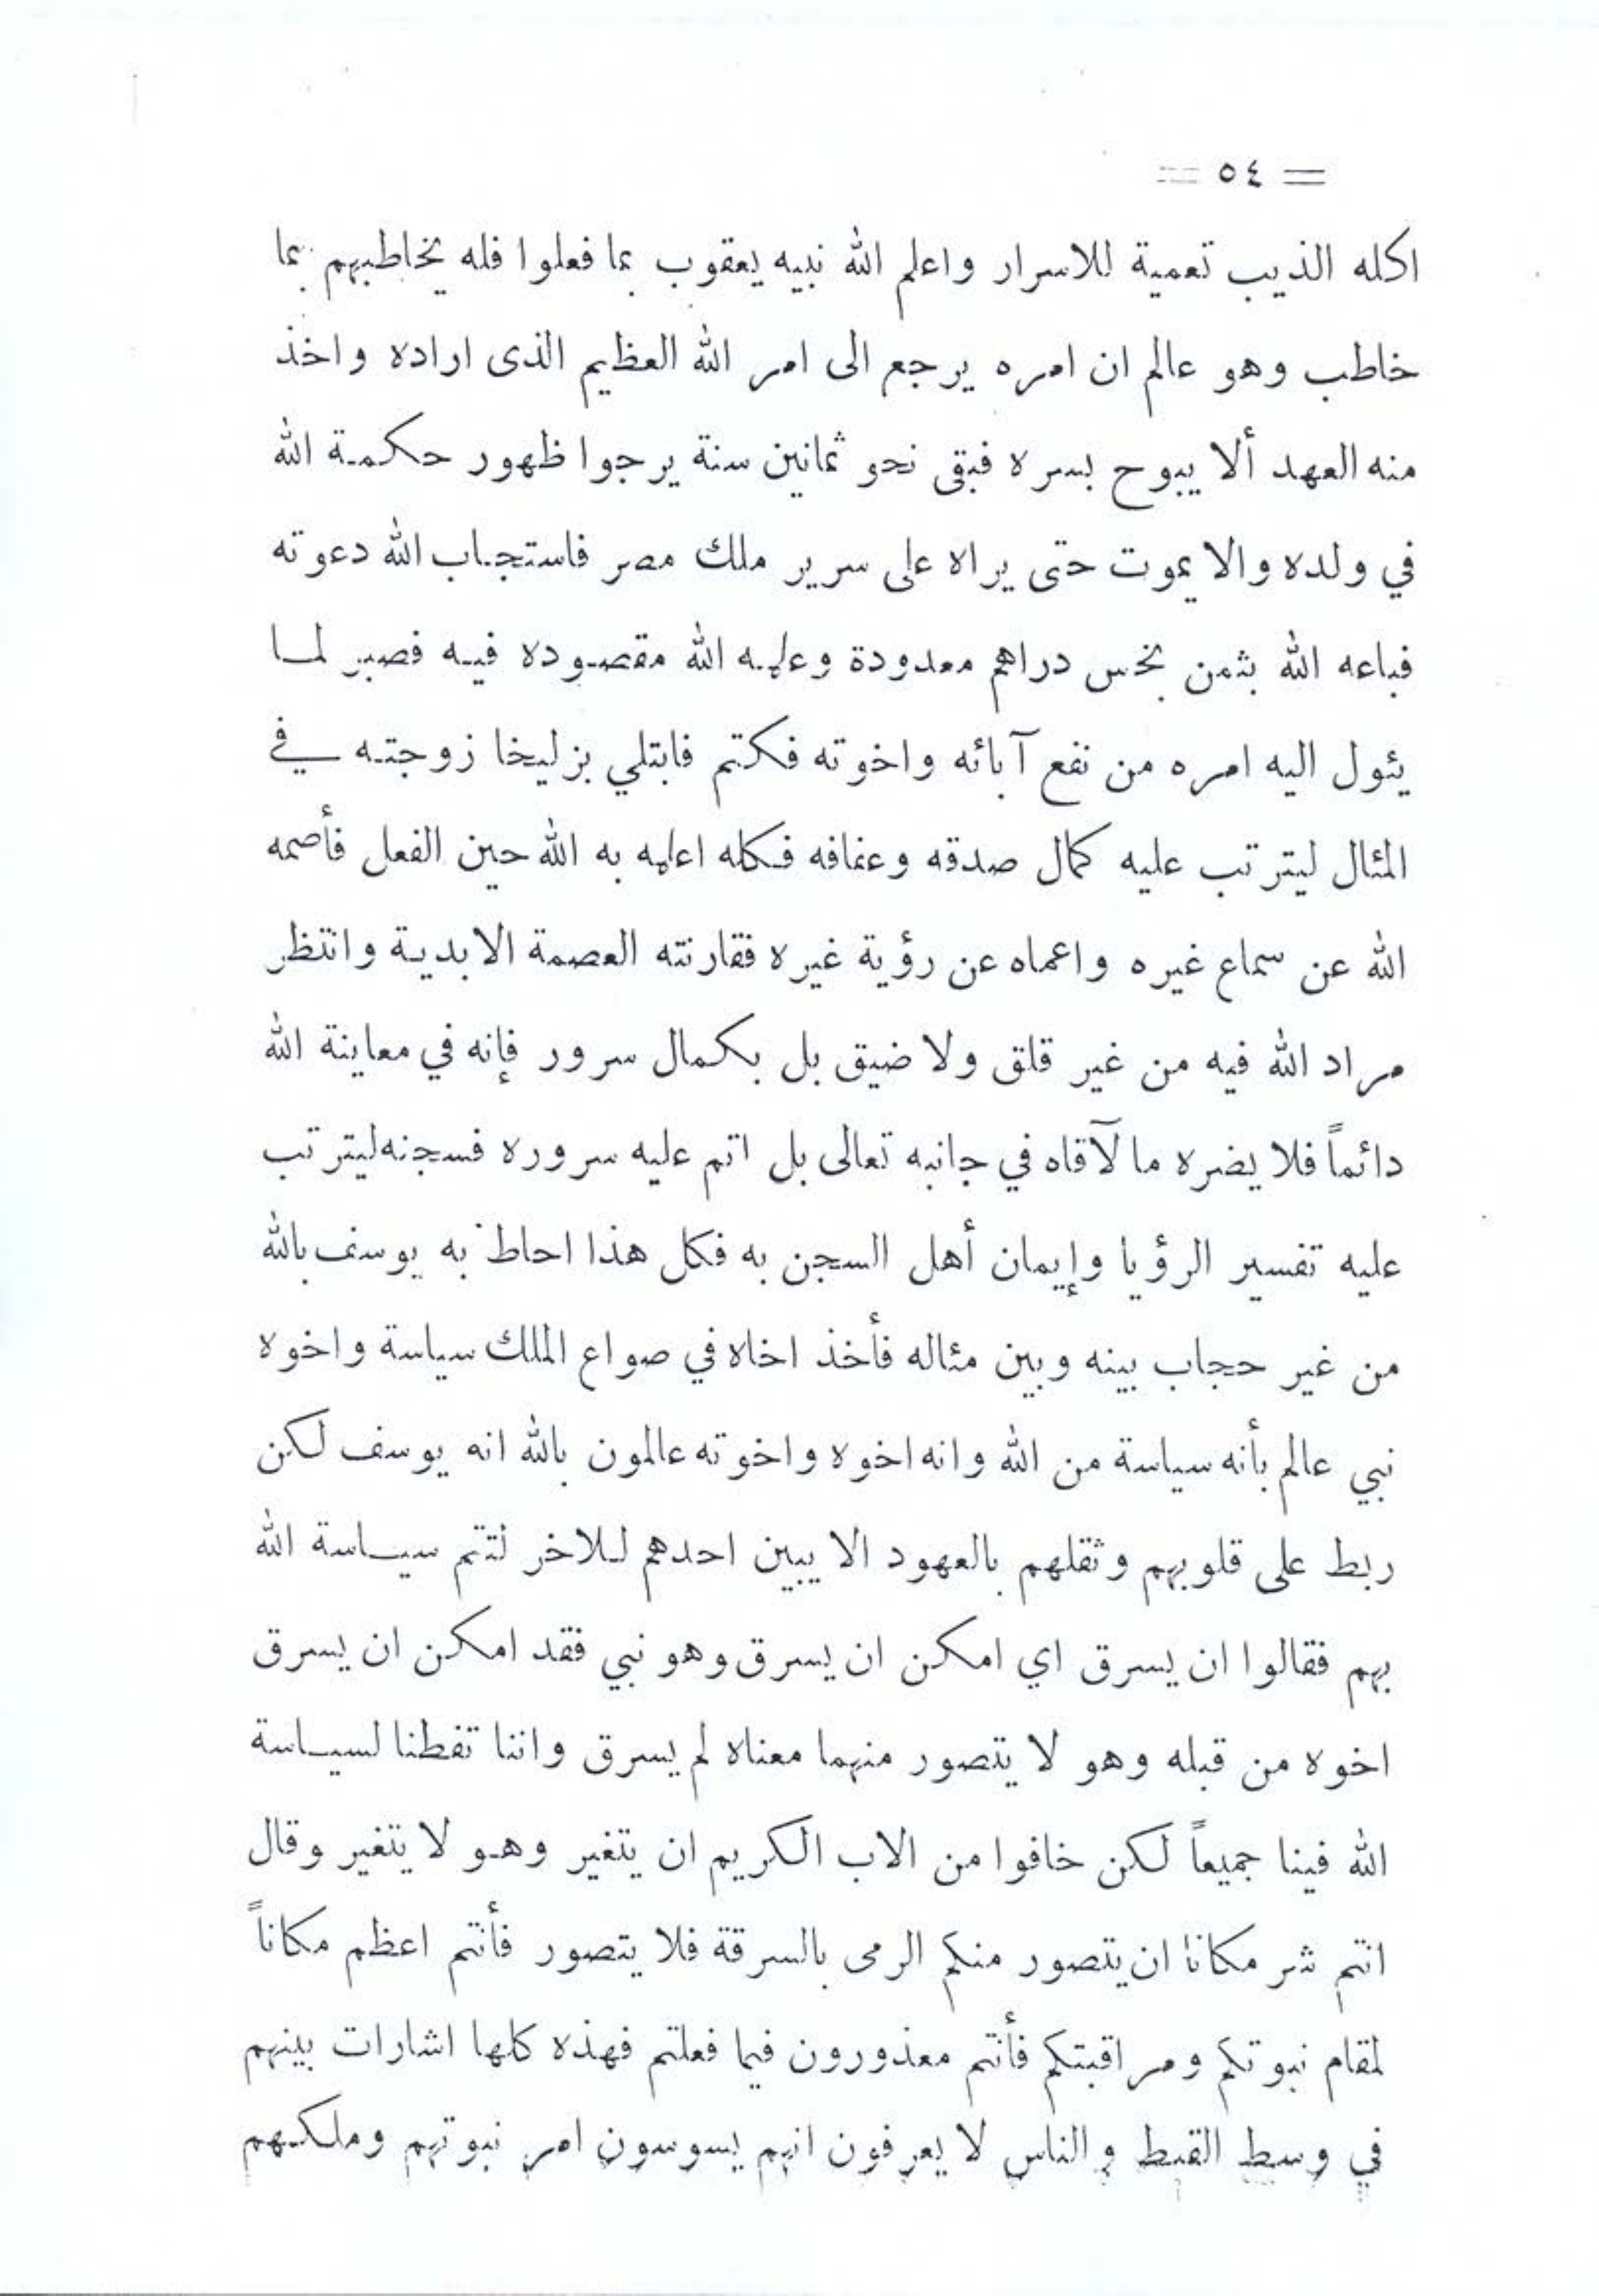 = ٥٤ =
اكله الذيب تعمية للاسرار واعلم الله نبيه يعقوب بما فعلوا فله يخاطبهم بما
خاطب وهو عالم ان امره يرجع الى امر الله العظيم الذى اراده واخذ
منه العهد ألا يبوح بسره فبقى نحو ثمانين سنة يرجوا ظهور حكمة الله
في ولده والا يموت حتى يراه على سرير ملك مصر فاستجاب الله دعوته
فباعه الله بثمن بخس دراهم معدودة وعلمه الله مقصوده فيه فصبر لما
يئول اليه امره من نفع آبائه واخوته فكتم فابتلي بزليخا زوجته في
المئال ليترتب عليه كمال صدقه وعفافه فكله اعلمه به الله حين الفعل فأصمه
الله عن سماع غيره واعماه عن رؤية غيره فقارنته العصمة الابدية وانتظر
مراد الله فيه من غير قلق ولا ضيق بل بكمال سرور فإنه في معاينة الله
دائماً فلا يضره ما لآقاه في جانبه تعالى بل اتم عليه سروره فسجنه ليترتب
عليه تفسير الرؤيا وإيمان أهل السجن به فكل هذا احاط به يوسف بالله
من غير حجاب بينه وبين مئاله فأخذ اخاه في صواع الملك سياسة واخوه
نبي عالم بأنه سياسة من الله وانه اخوه واخوته عالمون بالله انه يوسف لكن
ربط على قلوبهم وثقلهم بالعهود الا يبين احدهم للاخر لتتم سياسة الله
بهم فقالوا ان يسرق اي امكن ان يسرق وهو نبي فقد امكن ان يسرق
اخوه من قبله وهو لا يتصور منهما معناه لم يسرق واننا تفطنا لسياسة
الله فينا جميعاً لكن خافوا من الاب الكريم ان يتغير وهو لا يتغير وقال
انتم شر مكانا ان يتصور منكم الرمى بالسرقة فلا يتصور فأنتم اعظم مكاناً
لمقام نبوتكم ومراقبتكم فأنتم معذورون فيما فعلتم فهذه كلها اشارات بينهم
في وسط القبط والناس لا يعرفون انهم يسوسون امر نبوتهم وملكهم